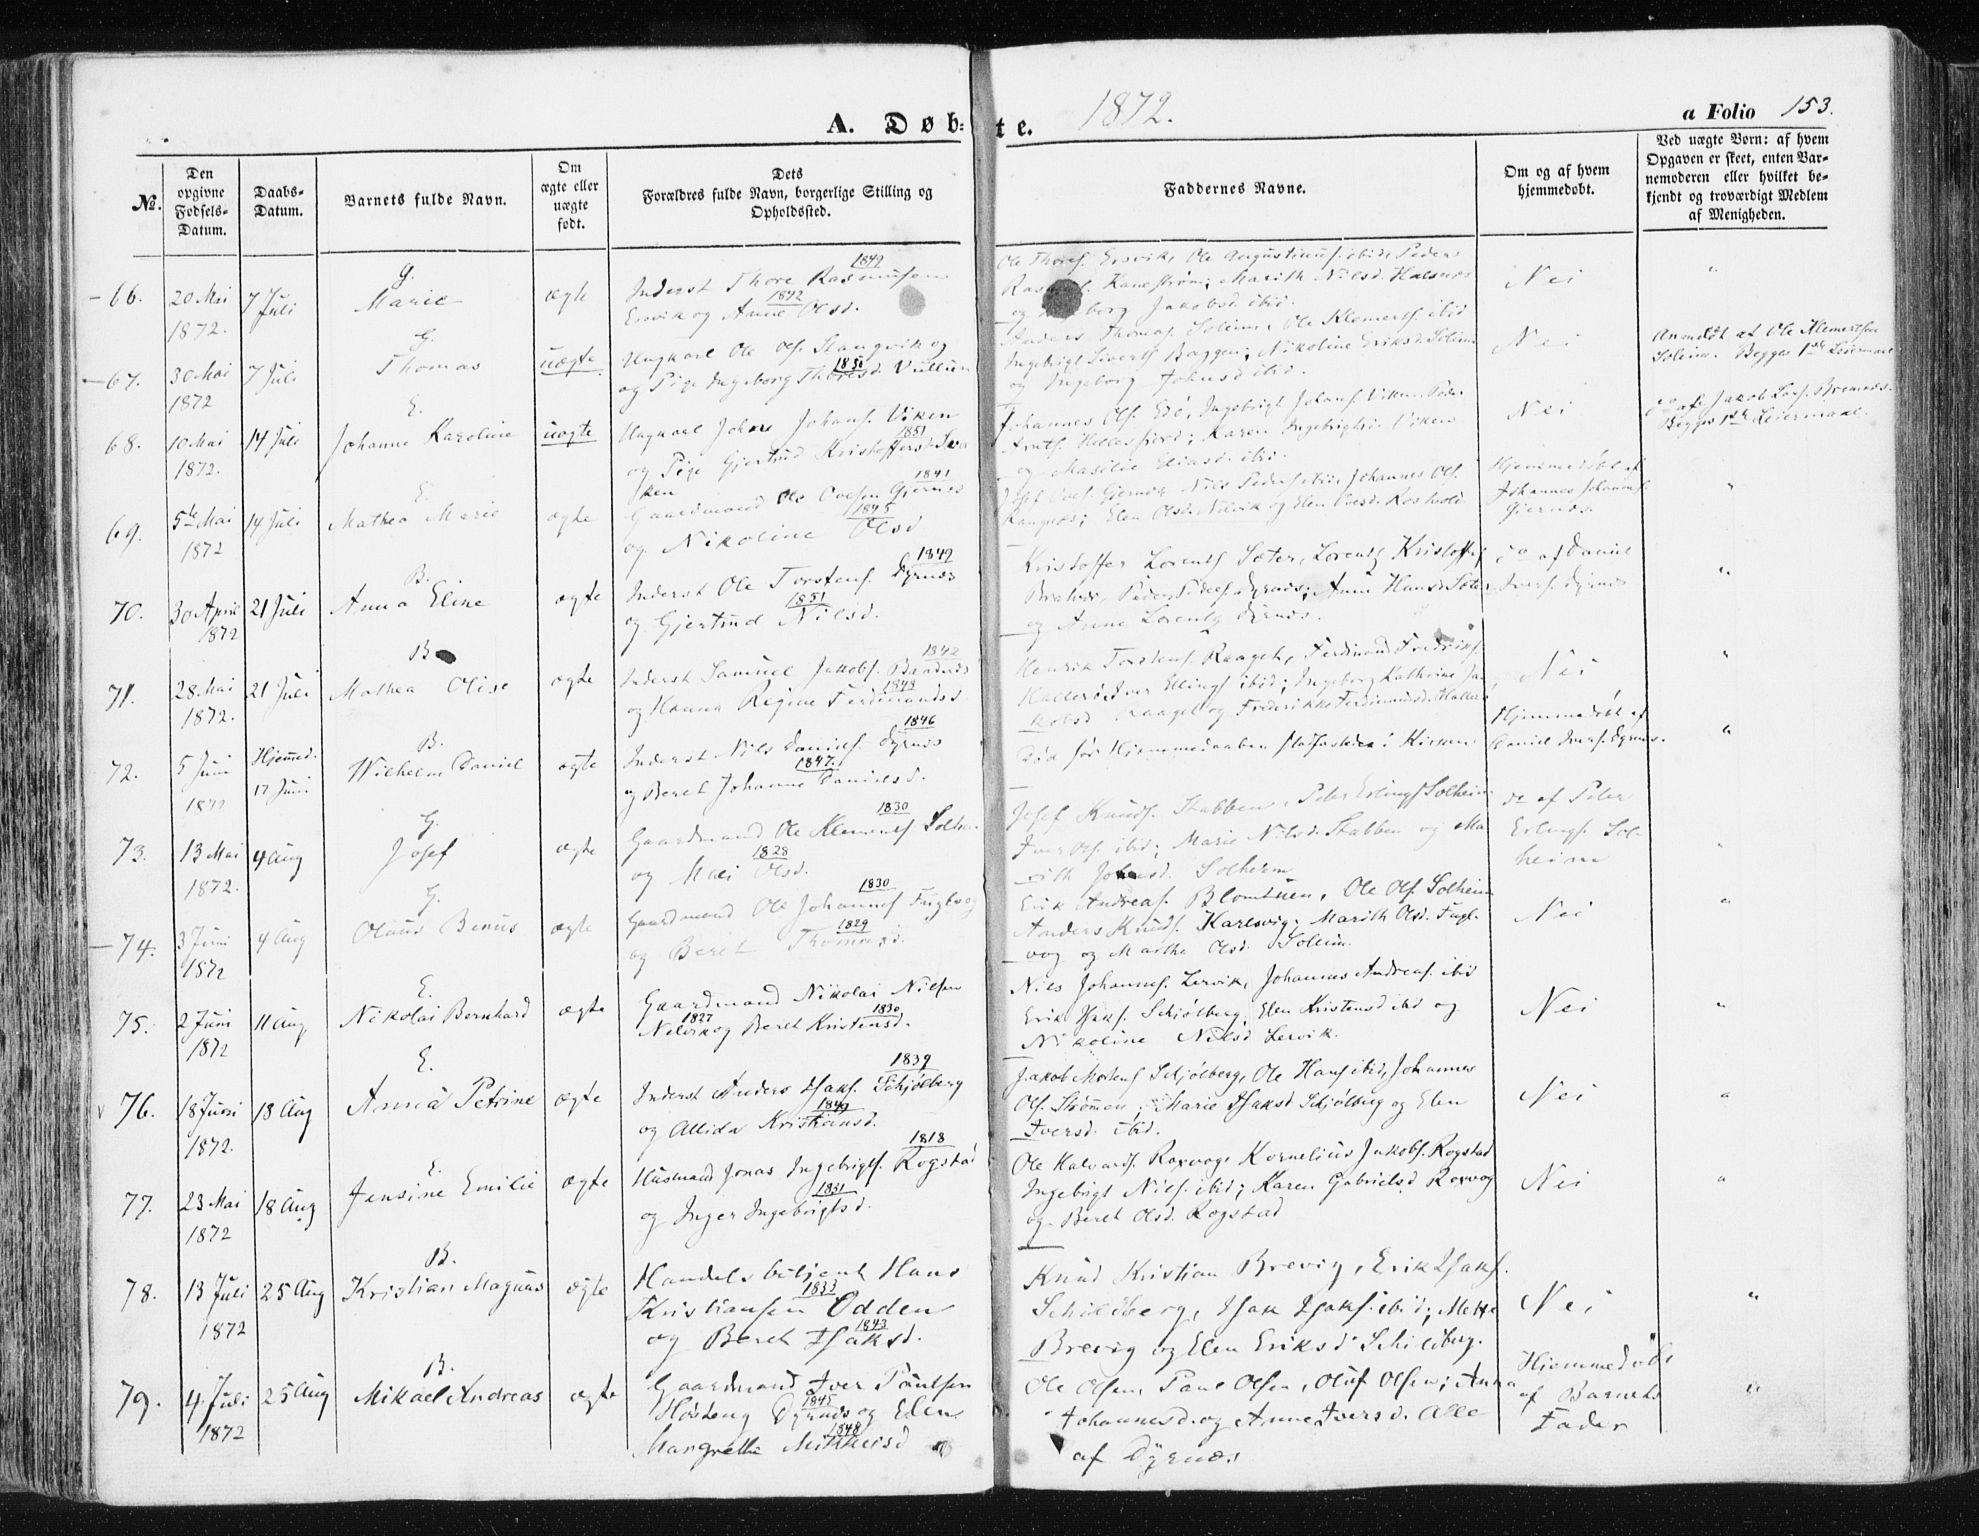 A. Døb-te. 1872. a Folio 153.
No.
Den opgivne Fødsels-Datum.
Daabs-Datum.
Barnets fulde Navn.
Om ægte eller uægte født.
Dets Forældres fulde Navn, borgerlige Stilling og Opholdssted.
Faddernes Navne.
Om og af hvem hjemmedøbt.
Ved uægte Børn: af hvem Opgaven er skeet, enten Barnemoderen eller hvilket bekjendt og troværdigt Medlem af Menigheden.
66. 20 Mai 1872. 7 Juli
G.
Marie
ægte
1849
Inderst Thore Rasmusen
1842
Ersvik og Anne Olsd.
Ole Thores. Ersvik, Ole Augustinus. ibid, Peder
Kanestrøm; Marith Nilsd. Halsnæs
Jakobsd. ibid.
Nei
"
67. 30 Mai 1872 7 Juli
G.
Thomas
uægte
Ungkarl Ole Ols. Stangvik og
1850
og Pige Ingeborg Thoresd. Vullum
Anders Thomas. Soleim, Ole Klemets. ibid
Ingebrigt Siverts. Baggen; Nikoline Eriksd. Soleim
og Ingeborg Johnsd. ibid.
Nei
Anmeldt af Ole Klemetsen
Soleim. Begges 1ste Leiermaal
68. 10 Mai 1872. 14 Juli
E.
Johanne Karoline
uægte
Ungkarl Johan Johans. Viken
1851
og Pige Gjertrud Kristoffersd.
Johannes Ols. Edø, Ingebrigt Johans. Viken, Peder
Arnts. Hellesfjord; Karen Ingebrigtsd. Viken
og Masilie Eliasd. ibid.
Nei
do af Jakob Lars. Bremnæs.
Begges 1ste Leiermaal.
69. 5te Mai 1872 14 Juli
E.
Mathea Marie
ægte
1841
Gaardmand Ole Olsen Gjernæs
1845
og Nikoline Olsd
Gjernæs, Nils Peders. ibid, Johannes Ols.
Rangnæs; Elen Olsd. Nelvik og Elen Olesd. Rosvold
Hjemmedøbt af
Johannes Johannes.
Gjernæs.
"
70. 30 April 1872 21 Juli
B.
Anna Eline
ægte
1849
Inderst Ole Torstens. Dyrnæs
1851
og Gjertrud Nilsd.
Kristoffer Lorents. Sæter, Lorents Kristoffers.
Peder Peders. Dyrnæs; Anne Hansd. Sæter
og Anne Lorents. Dyrnæs.
do af Daniel
Ivers. Dyrnæs
"
71. 28 Mai 1872. 21 Juli
B
Mathea Olise
ægte
1842
Inderst Samuel Jakobs. Baadnæs
1848
og Hanna Regine Ferdinandsd
Henrik Torstens. Raaget, Ferdinand Fredriks.
Hallerø, Iver Ellings. ibid; Ingeborg Kathrine Ja-
kobsd Raaget og Frederikke Ferdinandsd. Hallerø
Nei
"
72. 5 Juni 1872 Hjemmed. 17 Juni
B.
Wilhelm Daniel
ægte
1846
Inderst Nils Daniels. Dyrnæs
1847.
og Beret Johanne Danielsd.
Død før Hjemmedaaben stadfæstedes i Kirken
Hjemmedøbt af
Daniel Ivers. Dyrnæs.
"
73. 13 Mai 1872. 4 Aug
G.
Josef
ægte
1830
Gaardmand Ole Klemets. Solheim
1828
og Mali Olsd.
Josef Knuds. Stabben, Peter Erlings. Solheim
Iver Ols. ibid; Marie Nilsd. Stabben og Ma-
rith Johnsd. Solheim
do af Peter
Erlings. Sol-
heim
"
74. 3 Juni 1872 4 Aug
G.
Olaus Benus
ægte
1830
Gaardmand Ole Johannes. Fuglvog
1829
og Beret Thomasd.
Erik Andreas. Blomtuen, Ole Ols. Solheim
Anders Knuds. Karlsvig; Marith Olsd. Fugl-
vog og Marthe Olsd. Soleim.
Nei
"
75. 2 Juni 1872 11 Aug.
E.
Nikolai Bernhard
ægte
Gaardmand Nikolai Nilsen
1827 1830
Nelvik og Beret Kristensd.
Nils Johannes. Lervik, Johannes Andreas. ibid
Erik Isaks. Schjølberg, Elen Kristensd ibid og
Nikoline Nilsd Lervik.
Nei
"
76. 18 Juni 1872. 18 Aug
E.
Anna Petrine
ægte
1839
Inderst Anders Isaks. Schjølberg
1849
og Allida Kristiansd.
Jakob Mortens. Schjølberg, Ole Hans. ibid, Johannes
Ols. Strømmen; Marie Isaksd Schjølberg og Elen
Iversd. ibid.
Nei
"
77. 23 Mai 1872 18 Aug
E.
Jensine Emilie
ægte
1818
Husmand Jonas Ingebrigts. Rogstad
1831
og Inger Ingebrigtsd.
Ole Halvards. Roxvog, Kornelius Jakobs. Rogstad
Ingebrigt Nils. ibid; Karen Gabrielsd Roxvog
og Beret Olsd. Rogstad
Nei
"
78. 13 Juli 1872 25 Aug
B.
Kristian Magnus
ægte
Handelsbetjent Hans
1833
Kristiansen Odden
1843
og Beret Isaksd.
Knud Kristian Brevig, Erik Isaks.
Schildberg, Isak Isaks. ibid; Mette
Brevig og Elen Eriksd Schildberg.
Nei
"
79. 4 Juli 1872 25 Aug
B.
Mikael Andreas
ægte
Gaardmand Iver Paulsen
1845
Høsteng Dyrnæs og Elen
1848
Margrethe Mikkelsd
Ole Olsen, Paul Olsen, Oluf Olsen; Anna
Johannesd. og Anne Iversd. Alle
af Dyrnæs
Hjemmedøbt
af Barnets
Fader
"